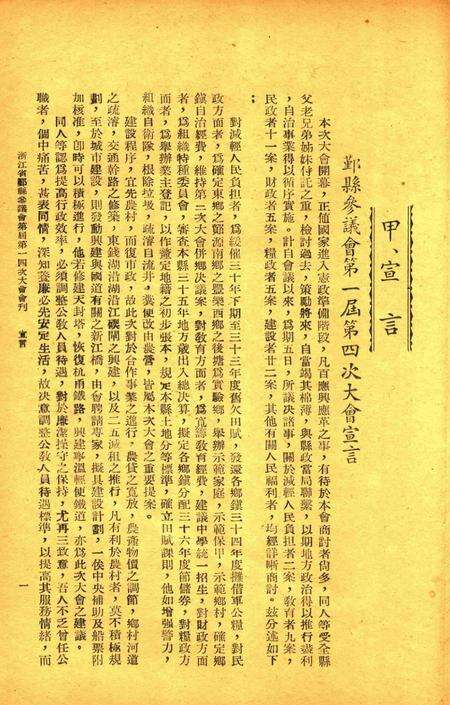 甲、宣言
鄞縣參議會第一屆第四次大會宣言
本次大會開幕，正値國家進入憲政準備階段，凡百應興應革之事，有待於本會商討者尙多，同人等受全縣
父老兄弟姊妹付託之重，檢討過去，策勵將來，自當竭其棉薄，與縣政當局聯繫，以期地方政治得以推行盡利
，自治事業得以循序實施。計自會議以來，爲期五日，所議决諸事，關於減輕人民負担者二案，敎育者九案，
民政者十一案，財政者五案，糧政者五案，建設者廿二案，其他有關人民福利者，均經詳晰商討。茲分述如下
：
對減輕人民負担者，爲緩催三十年下期至三十三年度舊欠田賦，發還各鄕鎭三十四年度攤借軍公糧，對民
政方面者，爲確定東鄕之鄮源南鄕之豐樂西鄕之後塘爲實驗鄕，舉辦示範家庭，示範保甲，示範鄕村，確定鄕
鎭自治經費，維持第三次大會併鄕决議案，對敎育方面者，爲寬籌敎育經費，建議中學統一招生，對財政方面
者，爲組織特種委員會，審查本縣三十五年地方歲出入總决算，擬定各鄕鎭分配三十六年度節儲券，對糧政方
面者，爲舉辦業主登記，以作釐定地籍之初步張本，規定本縣土地分等標準，確立田賦課則，他如增强警力，
組織自衛隊，根除垃圾，疏濬自流井，糞便改由農營，皆屬本次大會之重要提案。
建設程序，宜先農村，而復市政，故此次對於合作事業之進行，農貸之寬放，農產物價之調節，鄕村河道
之疏濬，交通幹路之修築，東錢湖湖沿江碶閘之興建，以及二五減租之推行，凡有利於農村者，莫不積極規
劃，至於城市建設，則發動興建與國道有關之新江橋，由會聘請專家，擬具建設計劃，一俟中央補助及船票附
加核准，卽時可以積極進行，他若修建天封塔，恢復杭甬鐵路，興建寧溫輕便鐵道，亦爲此次大會之建議。
同人等認爲提高行政效率，必須調整公敎人員待遇，對於廉潔操守之保持，尤再三致意，吾人不乏曾任公
職者，個中痛苦，甚表同情，深知養廉必先安定生活，故决意調整公敎人員待遇標準，以提高其服務情緖，而
浙江省鄞縣參議會第一屆第四次大會會刊　宣言
一